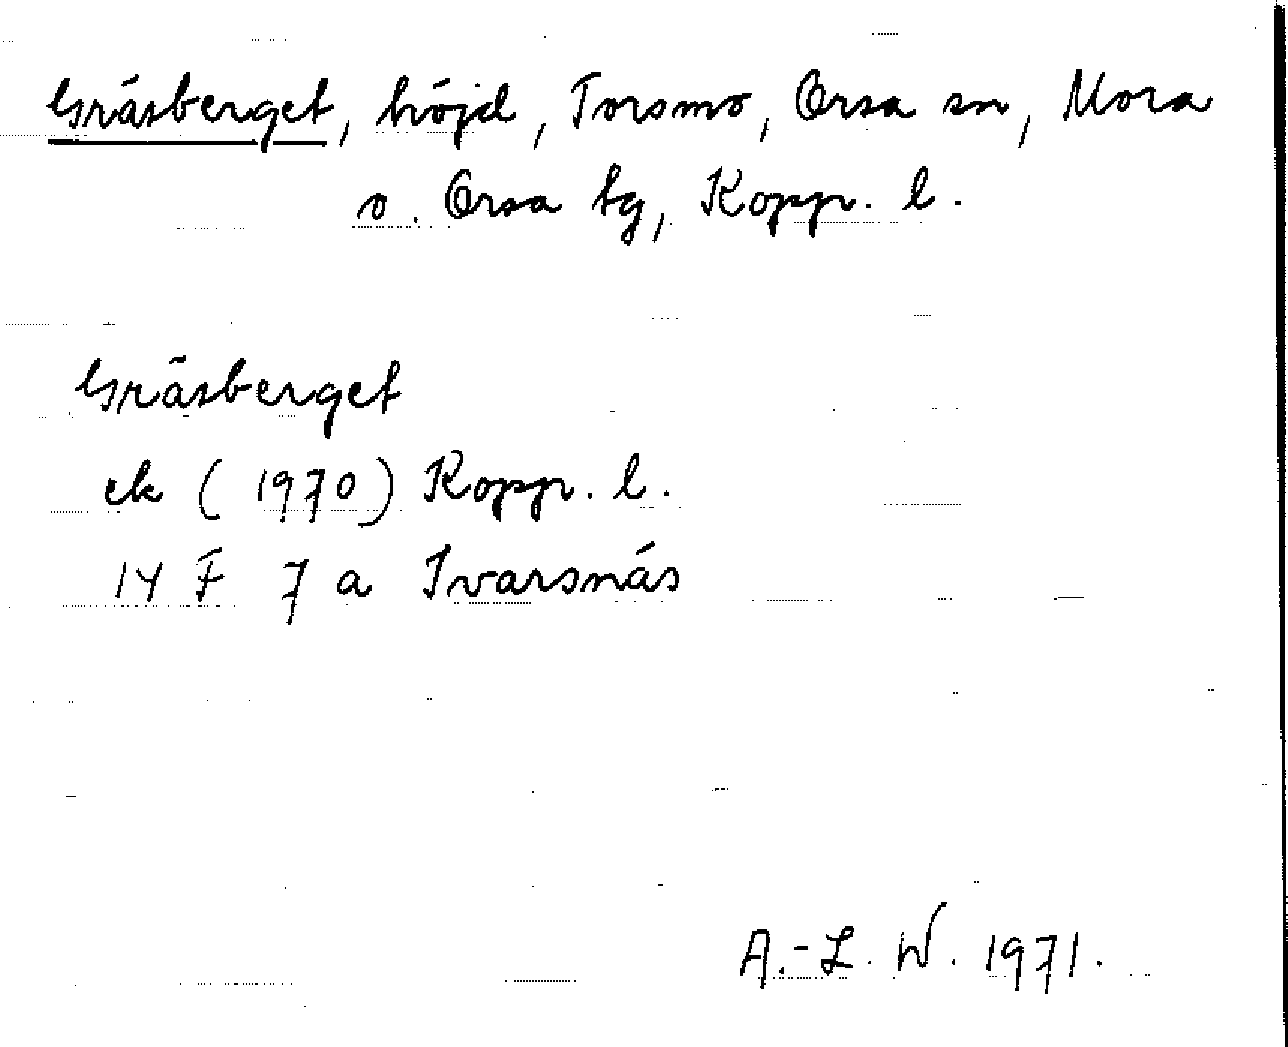 Gräsberget, höjd, Torsmo, Orsa sn, Mora
o. Orsa tg, Kopp. l.
Gräsberget
ek (1970) Kopp. l.
14 F 7 a Ivarsnäs
A.-L. W. 1971.